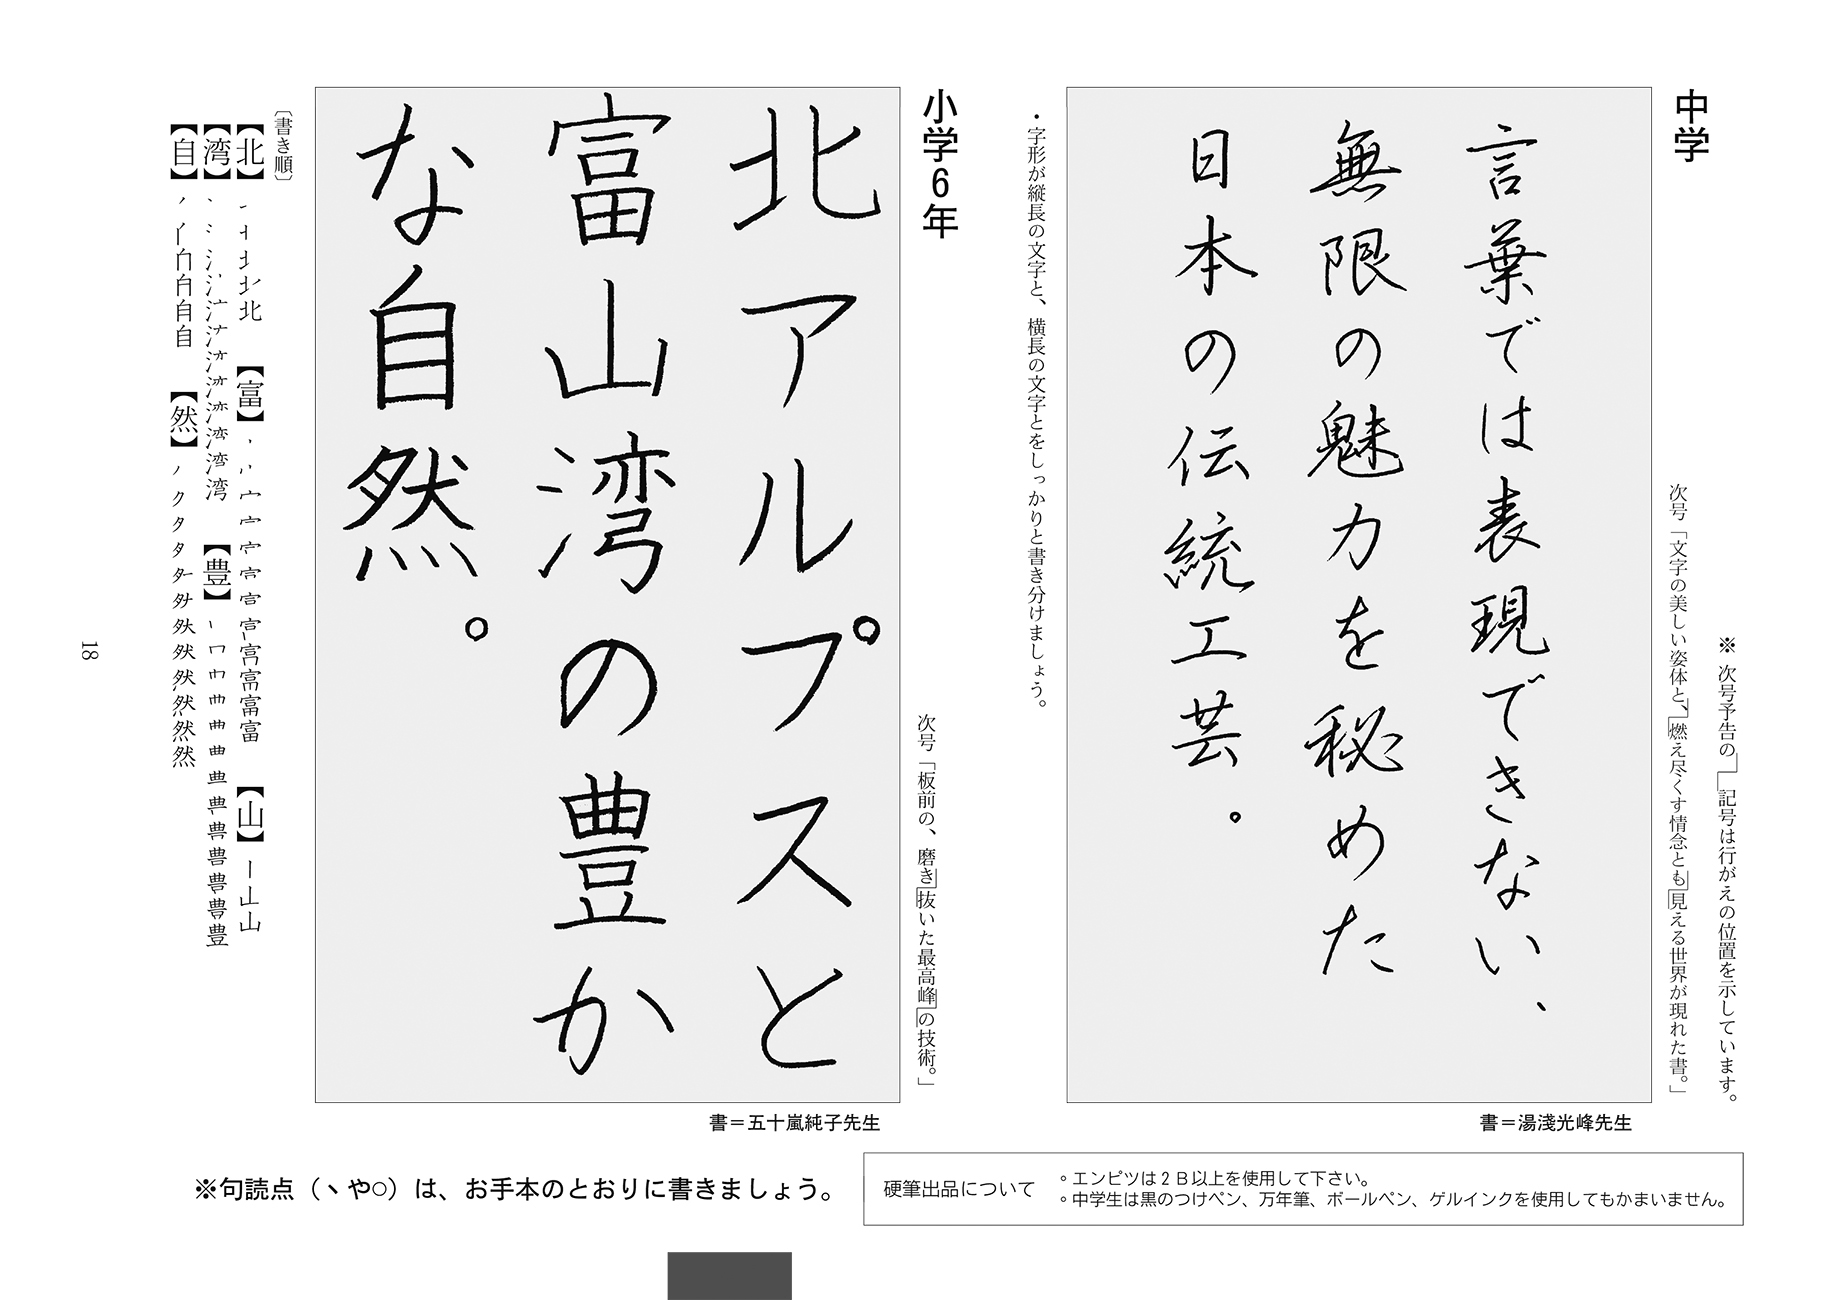 ※次号予告の」「記号は行がえの位置を示しています。
中学
次号「文字の美しい姿体と、」「燃え尽くす情念とも」「見える世界が現れた書。」
言葉では表現できない、
無限の魅力を秘めた
日本の伝統工芸。
書＝湯淺光峰先生
・字形が縦長の文字と、横長の文字とをしっかりと書き分けましょう。
小学6年
次号「板前の、磨き」「抜いた最高峰」「の技術。」
北アルプスと
富山湾の豊か
な自然。
書＝五十嵐純子先生
〔書き順〕
【北】 北 【富】 富 【山】 山
【湾】 湾 【豊】 豊
【自】 自 【然】 然
18
※句読点（、や○）は、お手本のとおりに書きましょう。
硬筆出品について
。エンピツは2B以上を使用して下さい。
。中学生は黒のつけペン、万年筆、ボールペン、ゲルインクを使用してもかまいません。